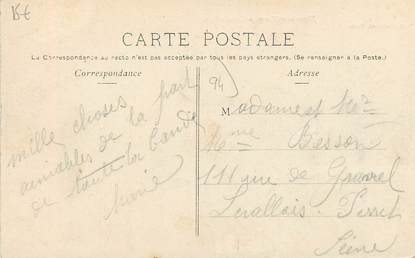 15€
CARTE POSTALE
La Correspondance au recto n'est pas acceptée par tous les pays étrangers. (Se renseigner à la Poste.)
Correspondance
Adresse
94)
mille choses
aimables de la part
de toute la bande
Marie
Madame et Mr
Mme Besson
111 rue de Gravel
Levallois-Perret
Seine